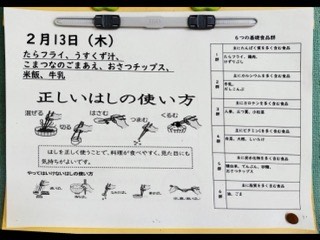 2月13日（木）
たらフライ、うすくず汁、
こまつなのごまあえ、おさつチップス、
米飯、牛乳
正しいはしの使い方
混ぜる
はさむ
つまむ
くるむ
切る
はしを正しく使うことで、料理が食べやすく、見た目にも
気持ちがよいです。
やってはいけないはしの使い方
6つの基礎食品群
主にたんぱく質を多く含む食品
1群
たらフライ、鶏肉、
主にカルシウムを多く含む食品
2群
牛乳、
主にカロテンを多く含む食品
3群
人参、小松菜
主にビタミンCを多く含む食品
4群
白菜、大根、しいたけ
主に炭水化物を多く含む食品
5群
精白米、でんぷん、砂糖、
おさつチップス
主に脂質を多く含む食品
6群
油、ごま